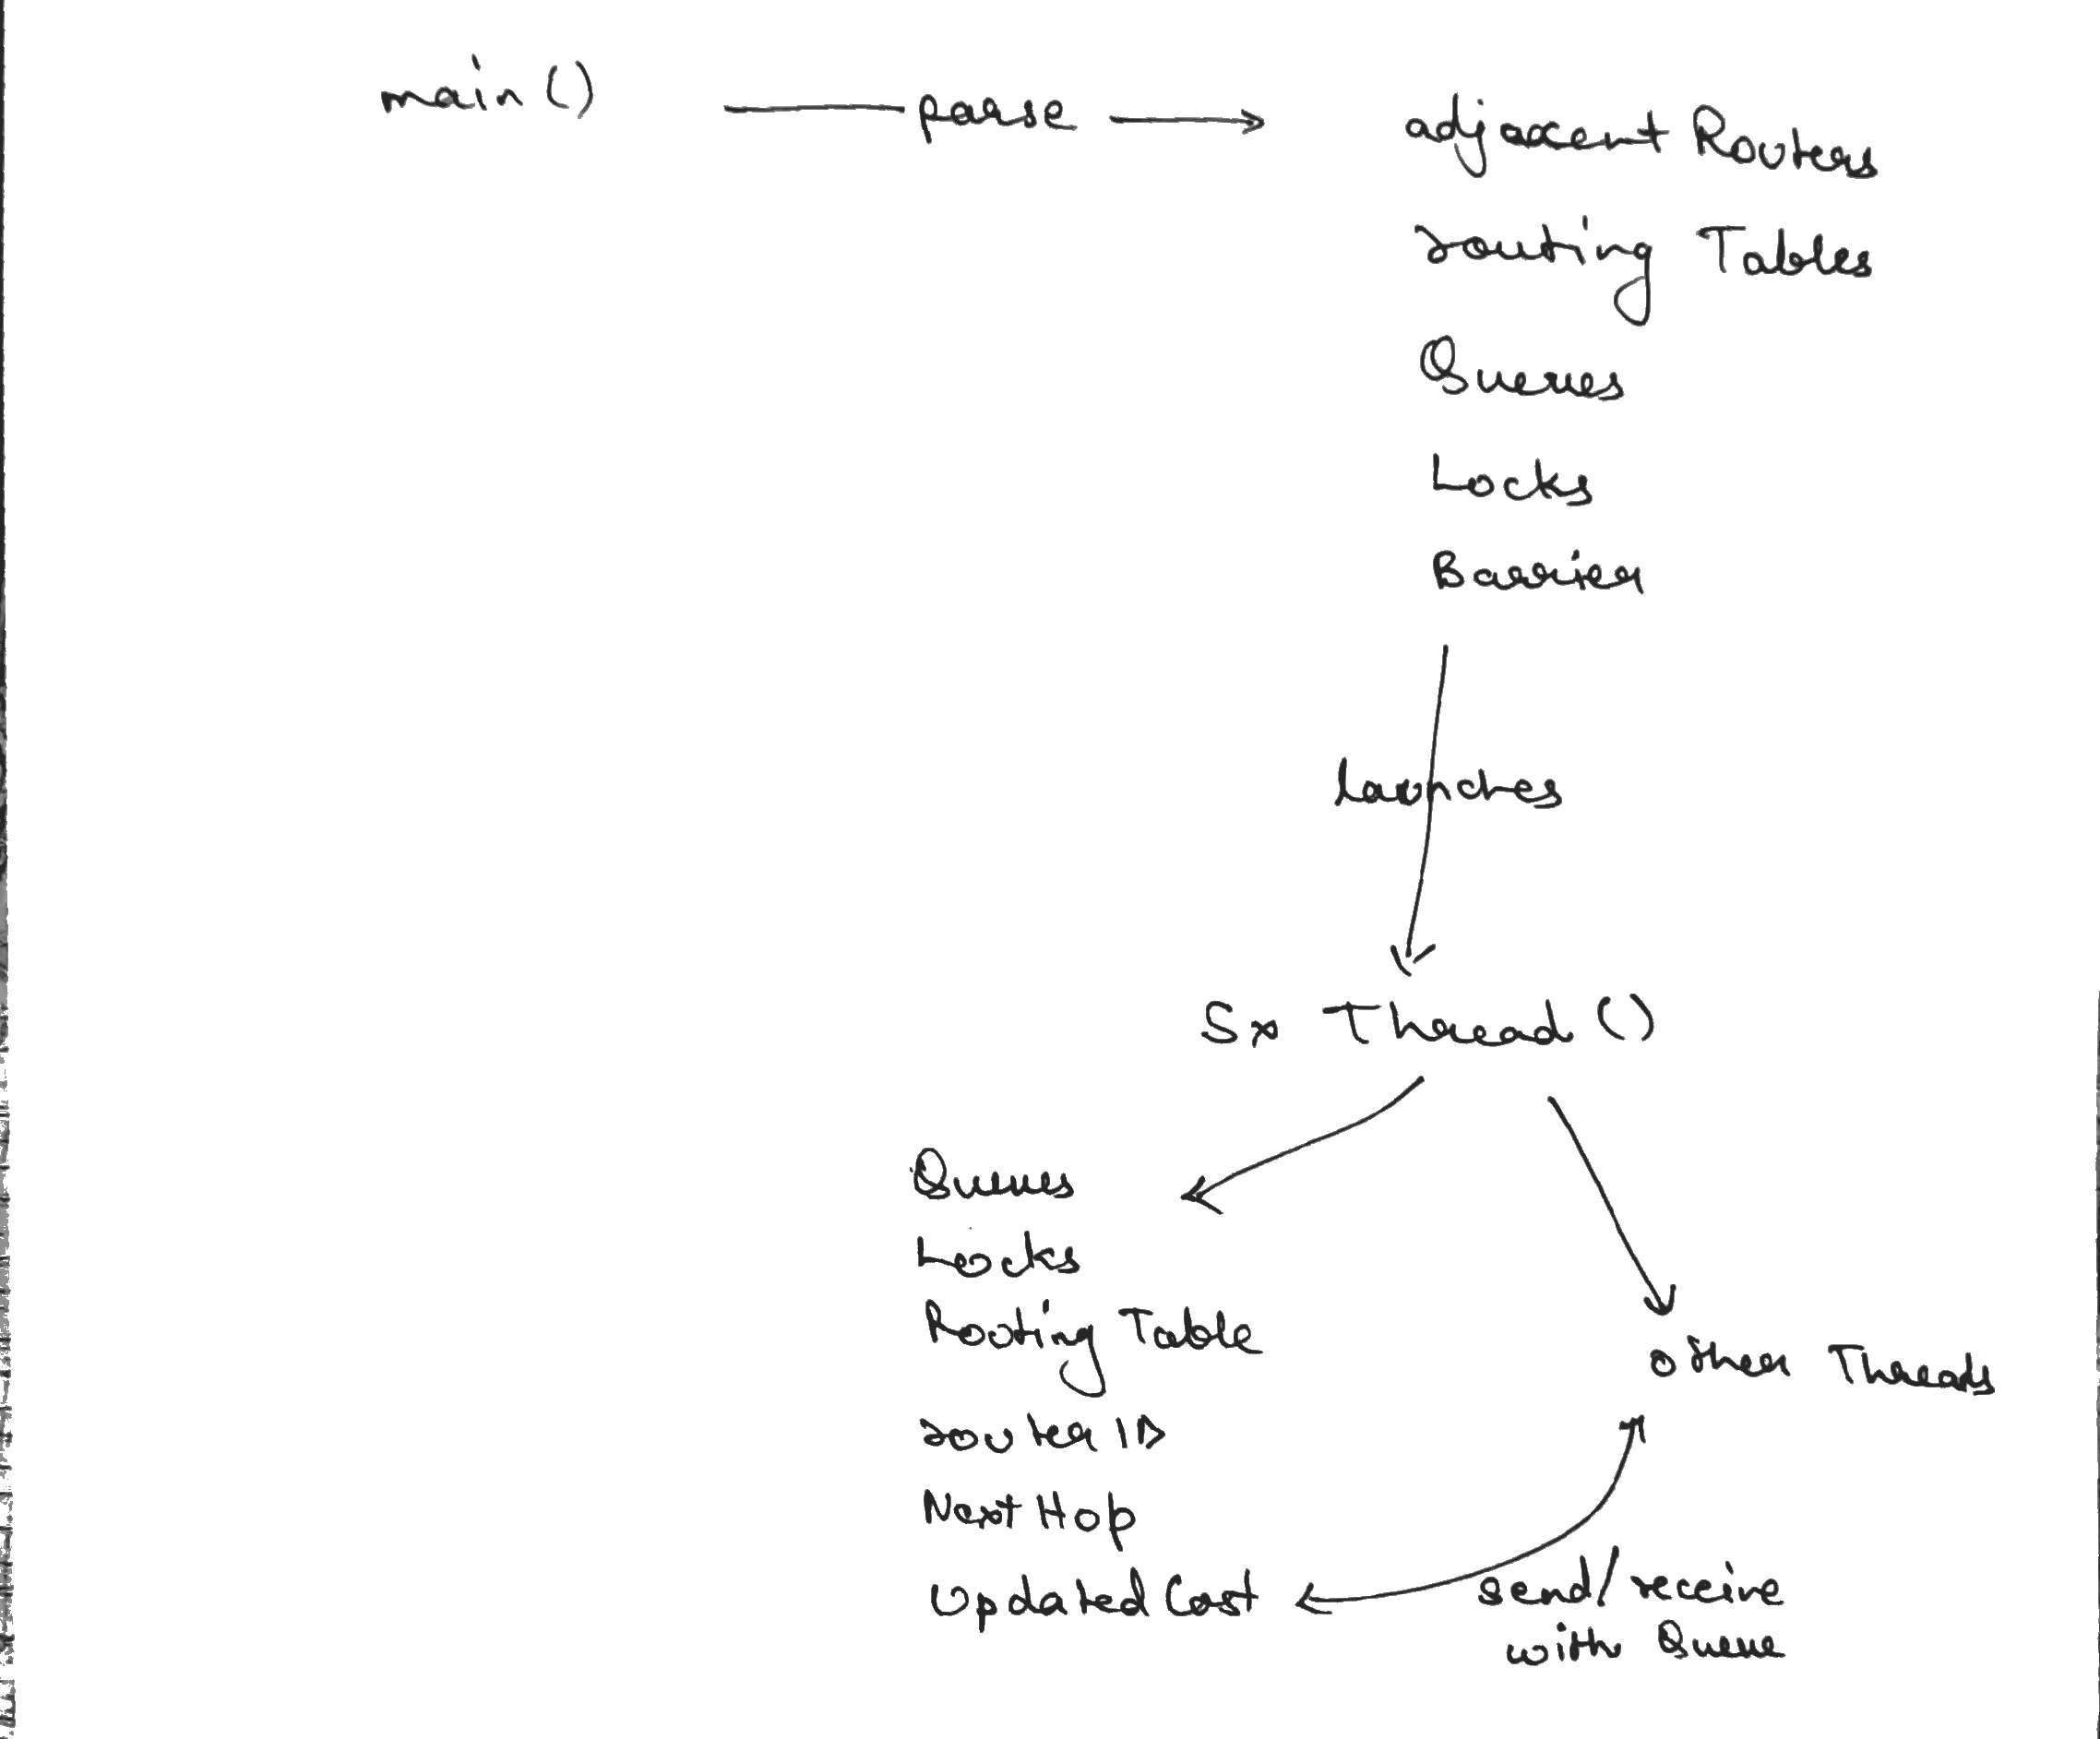 main() parse adjacent Routers
routing Tables
Queues
Locks
Barrier
launches
5x Thread()
Queues
Locks
Routing Table
other Threads
router ID
Next Hop
Updated Cost
send/receive
with Queue